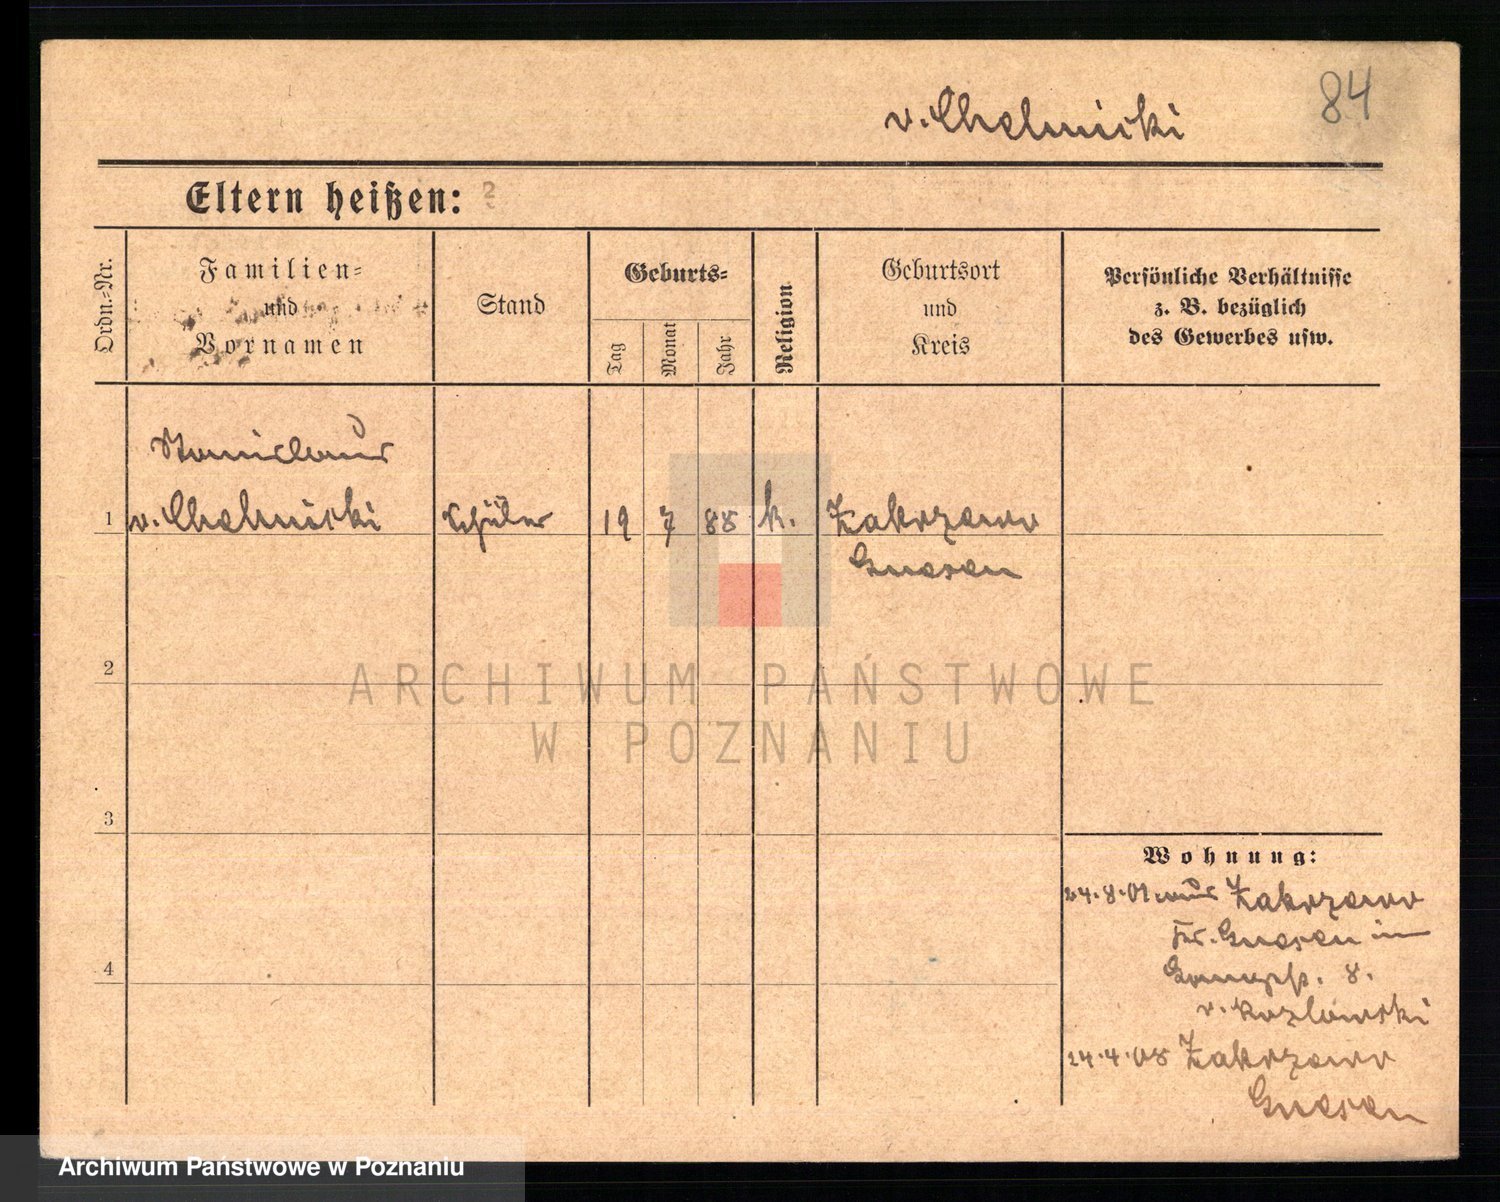 84
v. Chelmicki
Eltern heißen:
Ordn.-Nr.
Familien-
und
Vornamen
Stand
Geburts-
Tag
Monat
Jahr
Religion
Geburtsort
und
Kreis
Persönliche Verhältnisse
z. B. bezüglich
des Gewerbes usw.
Stanislaus
1 v. Chelmicki Schüler 19 7 88 k. Zakrzewo
Gnesen
2
3
4
Wohnung:
24.8.01 aus Zakrzewo
Kr. Gnesen in
8.
v. Kozlowski
24.4.08 Zakrzewo
Gnesen
ARCHIWUM PAŃSTWOWE
W POZNANIU
Archiwum Państwowe w Poznaniu